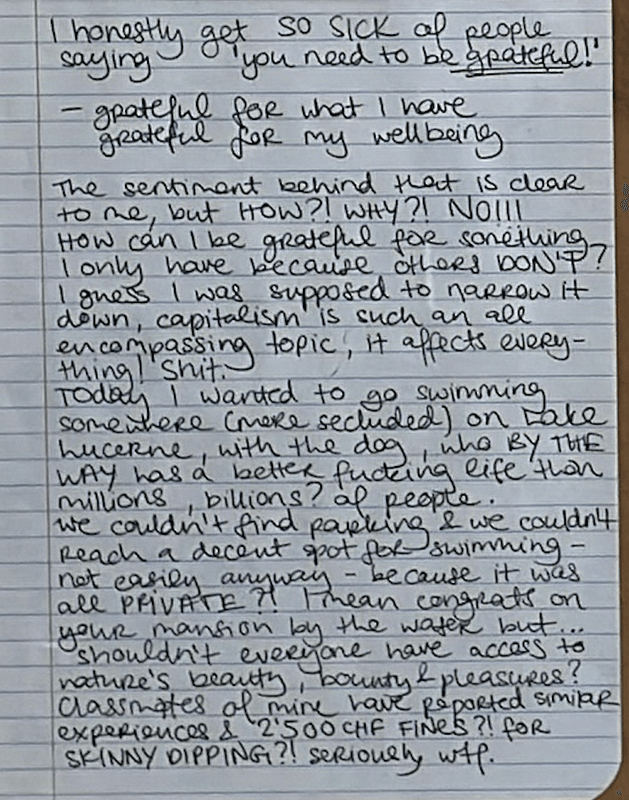 I honestly get SO SICK of people
saying 'you need to be grateful!'
- grateful for what I have
grateful for my wellbeing
The sentiment behind that is clear
to me, but HOW?! WHY?! NO!!!
HOW can I be grateful for something
I only have because others DON'T?
I guess I was supposed to narrow it
down, capitalism is such an all
encompassing topic, it affects every-
thing! Shit.
Today I wanted to go swimming
somewhere (more secluded) on Lake
Lucerne, with the dog, who BY THE
WAY has a better fucking life than
millions, billions? of people.
We couldn't find parking & we couldn't
reach a decent spot for swimming -
not easily anyway - because it was
all PRIVATE?! I mean congrats on
your mansion by the water but...
shouldn't everyone have access to
nature's beauty, bounty & pleasures?
Classmates of mine have reported similar
experiences & 2'500 CHF FINES?! for
SKINNY DIPPING?! seriously wtf.